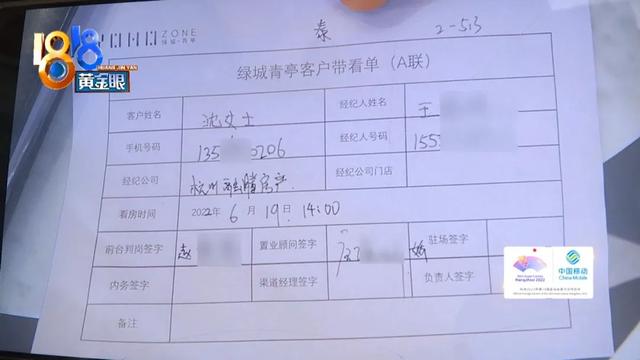 1818
黄金眼
YOHO ZONE
绿城·青亭
泰
2-513
绿城青亭客户带看单（A联）
客户姓名 沈女士 经纪人姓名 王
手机号码 135 0206 经纪人号码 155
经纪公司 杭州 房产 经纪公司门店
看房时间 2022年6月19日 14:00
前台判岗签字 赵 置业顾问签字 驻场签字
内务签字 渠道经理签字 负责人签字
备注
Hangzhou 2022
中国移动
China Mobile